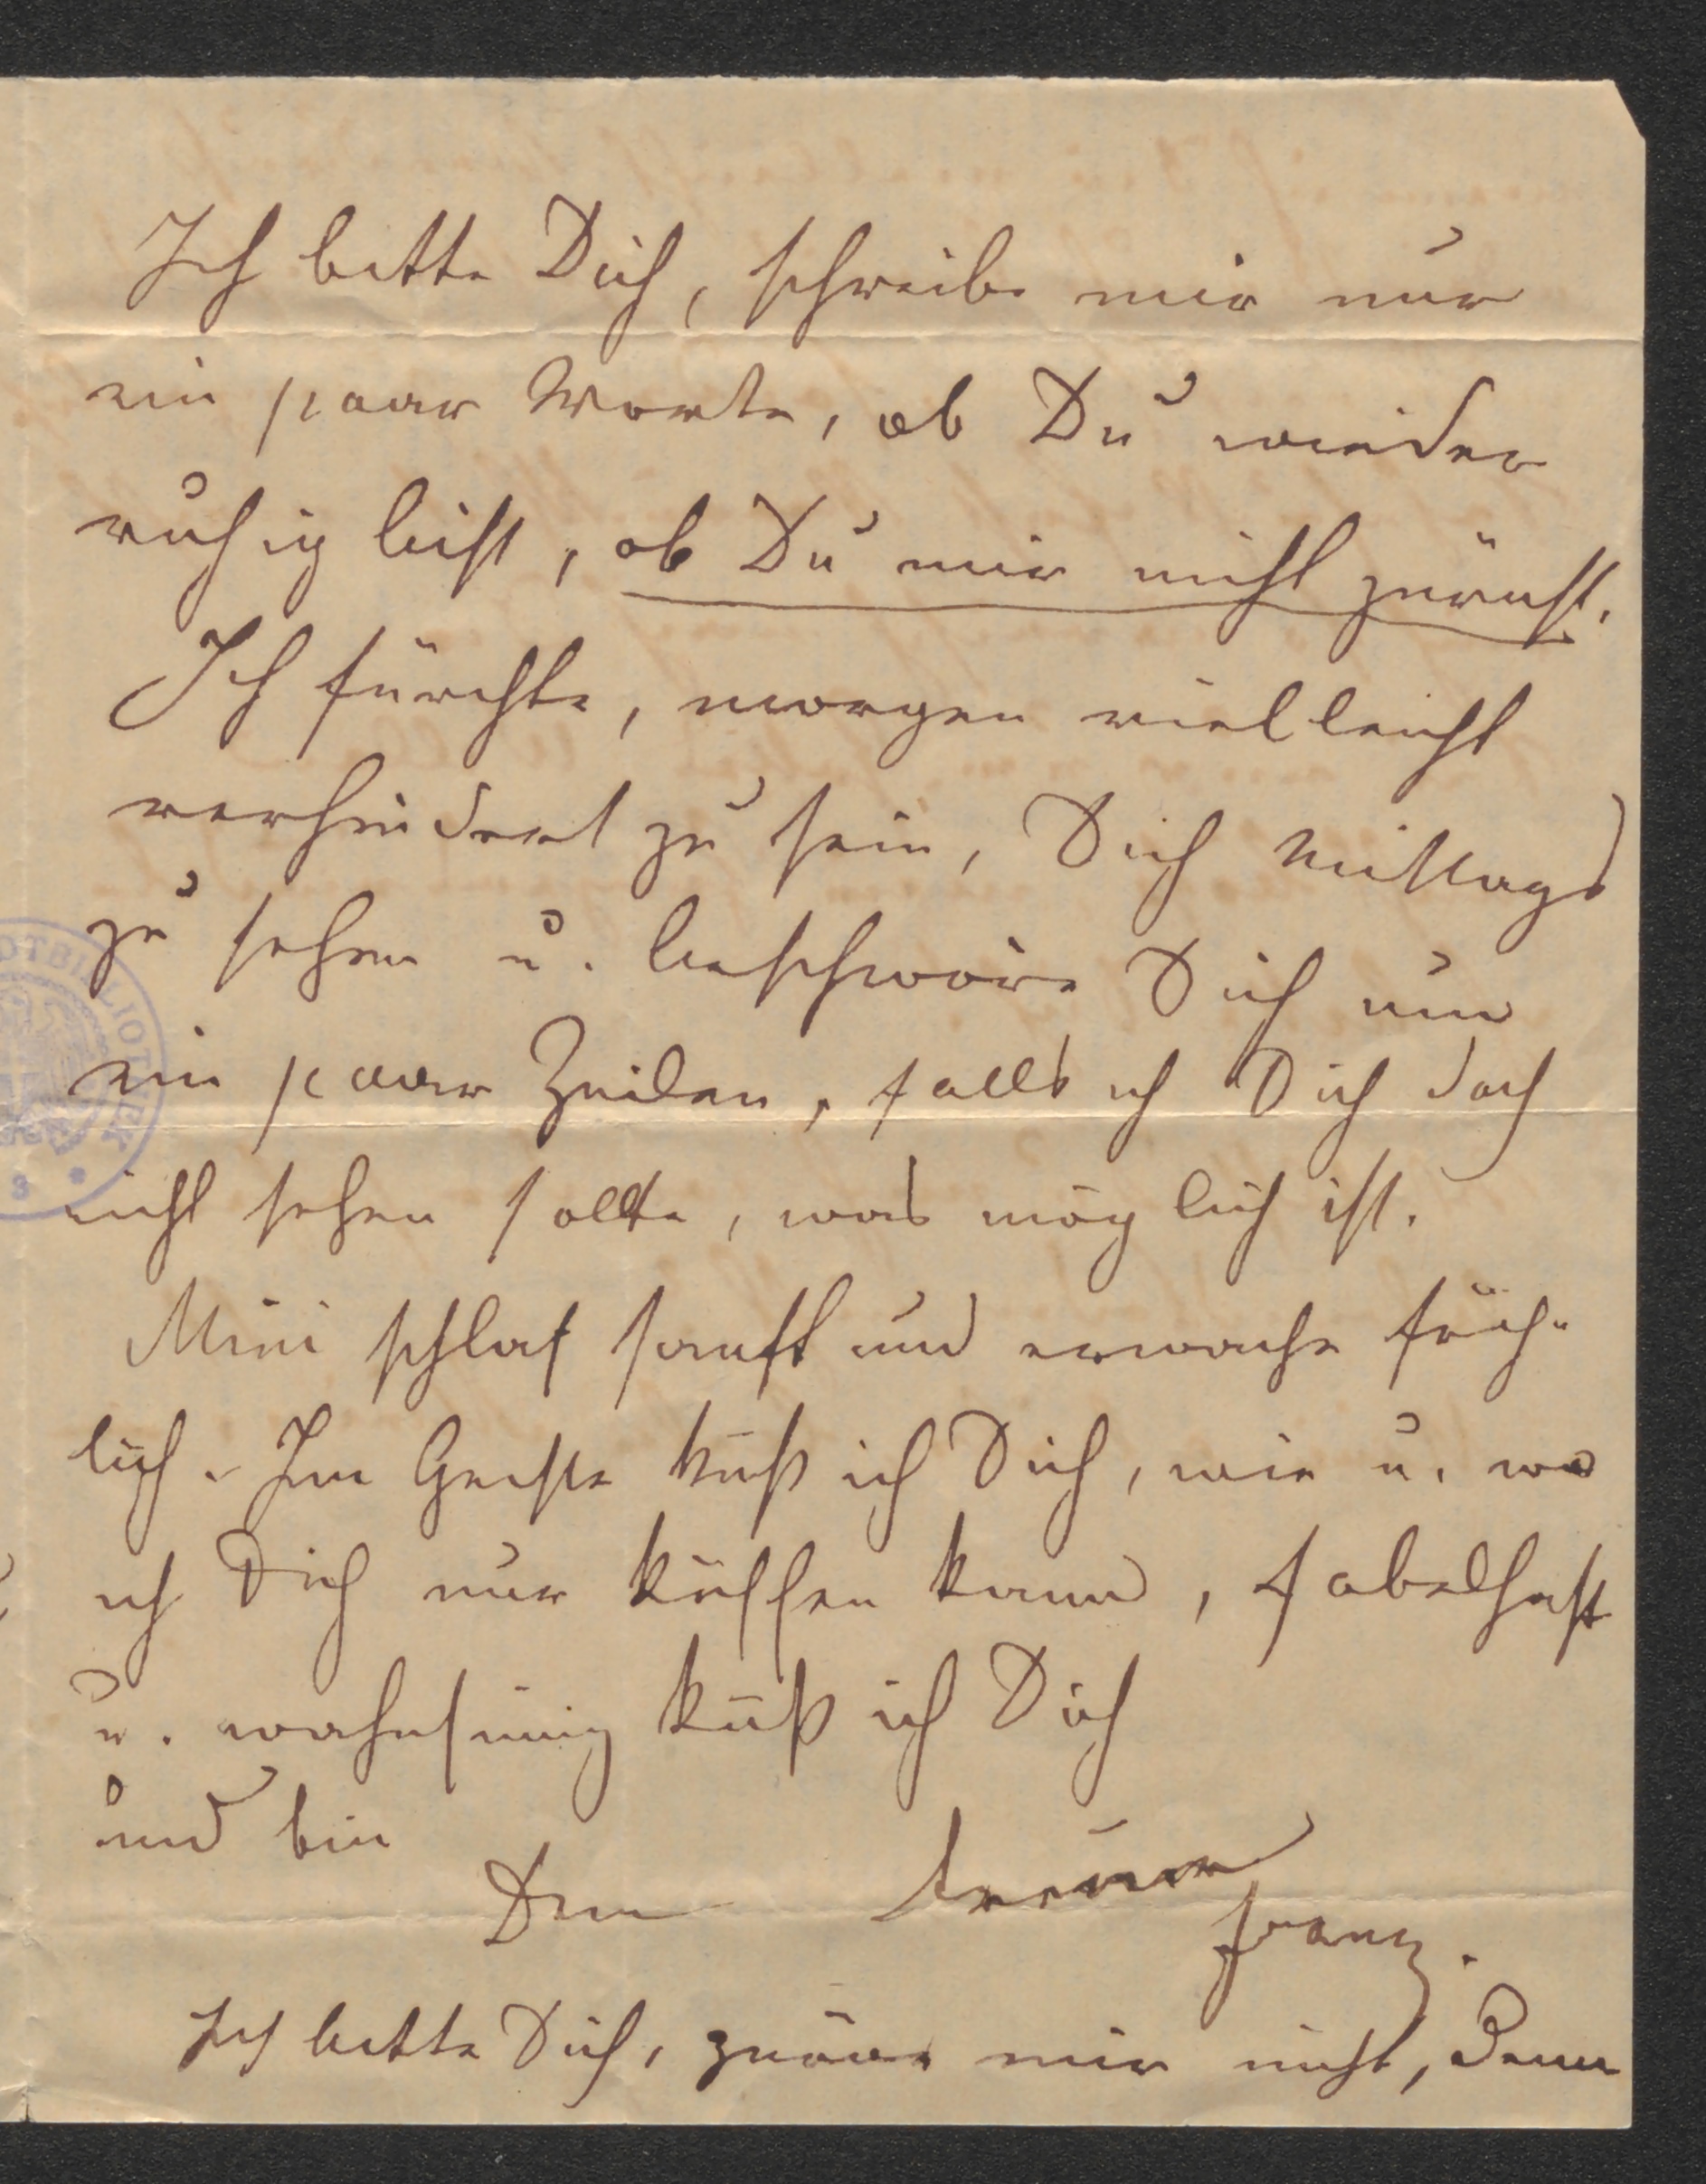 Ich bitte Dich, schreibe mir nur
ein paar Worte, ob Du wieder
ruhig bist, ob Du mir nicht zürnst.
Ich fürchte, morgen vielleicht
verhindert zu sein, Dich Mittags
zu sehen u. beschwöre Dich um
ein paar Zeilen, falls ich Dich doch
nicht sehen sollte, was möglich ist.
Mini schlaf sanft und erwache fröh-
lich. Im Geiste küß ich Dich, wie u. wo
ich Dich nur küssen kann, fabelhaft
u. wahnsinnig küß ich Dich
und bin
Dein treuer
Franz.
Ich bitte Dich, zürne mir nicht, denn